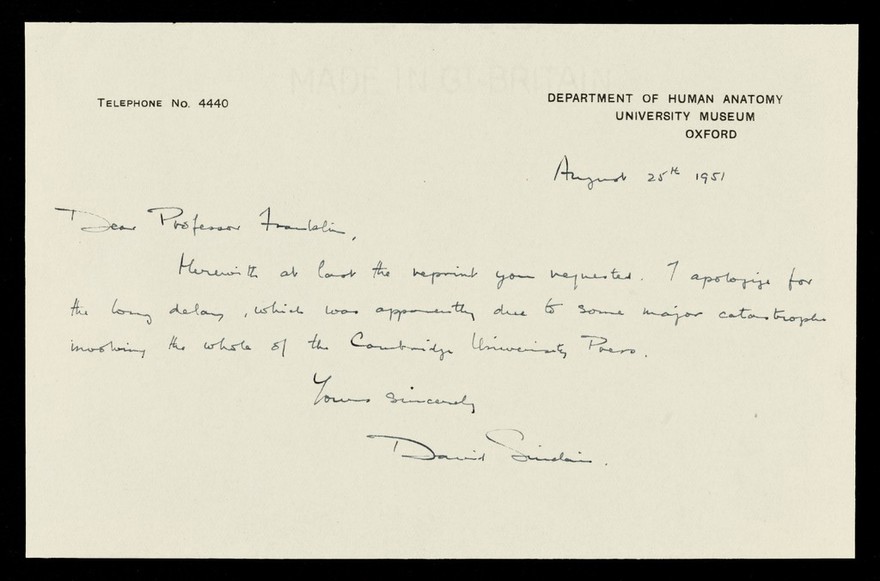 MADE IN GT BRITAIN
TELEPHONE NO. 4440
DEPARTMENT OF HUMAN ANATOMY
UNIVERSITY MUSEUM
OXFORD
August 25th 1951
Dear Professor Franklin,
Herewith at last the reprint you requested. I apologize for
the long delay, which was apparently due to some major catastrophe
involving the whole of the Cambridge University Press.
Yours sincerely
David Sinclair.